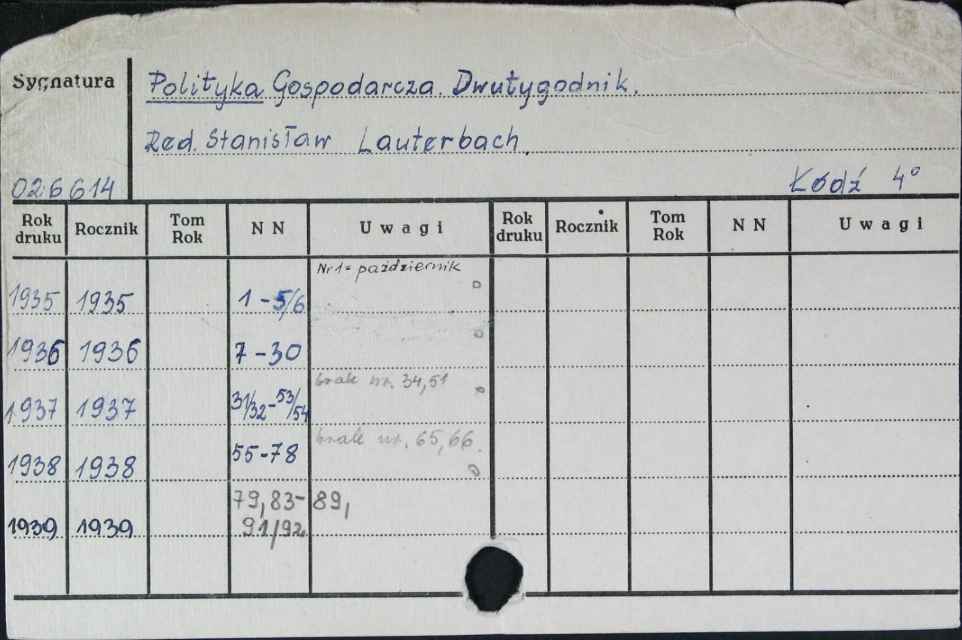 Sygnatura
Polityka Gospodarcza. Dwutygodnik.
Red. Stanisław Lauterbach.
026614
Łódź 4°
Rok druku Rocznik Tom Rok N N Uwagi Rok druku Rocznik Tom Rok N N Uwagi
Nr 1 = październik
1935 1935 1 - 5/6
1936 1936 7 - 30
brak nr. 34, 51
1937 1937 31/32 - 53/54
brak nr. 65, 66.
1938 1938 55 - 78
79, 83 - 89,
1939 1939 91/92